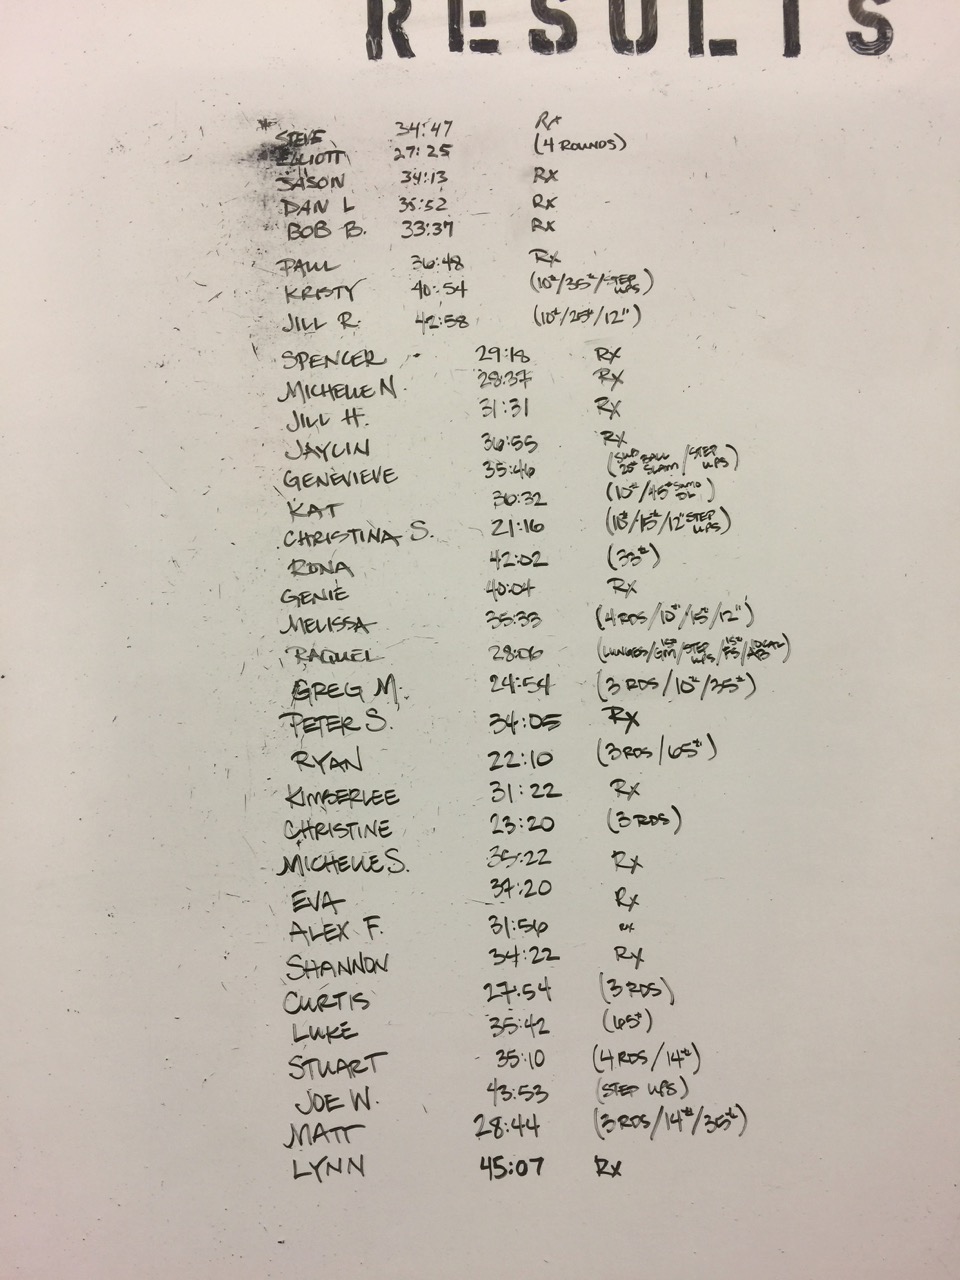 RESULTS
STEVE 34:47 Rx
ELLIOTT 27:25 (4 ROUNDS)
JASON 34:13 Rx
DAN L 35:52 Rx
BOB B. 33:37 Rx
PAUL 36:48 Rx
KRISTY 40:54 (10#/35#/STEP UPS)
JILL R. 42:58 (10#/25#/12")
SPENCER 29:18 Rx
MICHELLE N. 28:37 Rx
JILL H. 31:31 Rx
JAYLIN 36:55 Rx
GENEVIEVE 35:46 (SUB 25# BALL SLAM/STEP UPS)
KAT 36:32 (10#/45# SUMO DL)
CHRISTINA S. 21:16 (10#/15#/12" STEP UPS)
RONA 42:02 (33#)
GENIE 40:04 Rx
MELISSA 35:33 (4 RDS/10#/15#/12")
RAQUEL 28:06 (LUNGES/ /STEP UPS/15# PS/)
GREG M. 24:54 (3 RDS/10#/35#)
PETER S. 34:05 Rx
RYAN 22:10 (3 RDS/65#)
KIMBERLEE 31:22 Rx
CHRISTINE 23:20 (3 RDS)
MICHELLE S. 35:22 Rx
EVA 37:20 Rx
ALEX F. 31:56 Rx
SHANNON 34:22 Rx
CURTIS 27:54 (3 RDS)
LUKE 35:42 (65#)
STUART 35:10 (4 RDS/14#)
JOE W. 43:53 (STEP UPS)
MATT 28:44 (3 RDS/14#/35#)
LYNN 45:07 Rx